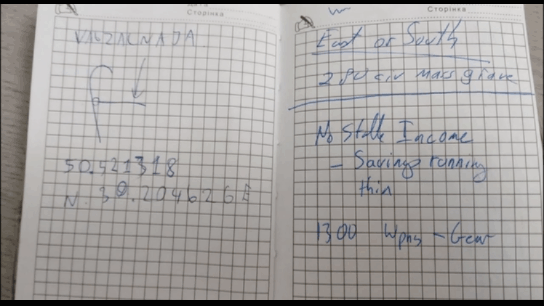 Сторінка
50.521318
N. 39.204626 E
Сторінка
East or South
280 civ mass grave
No Stable Income
- Savings running
thin
1300 Wpns - Gear